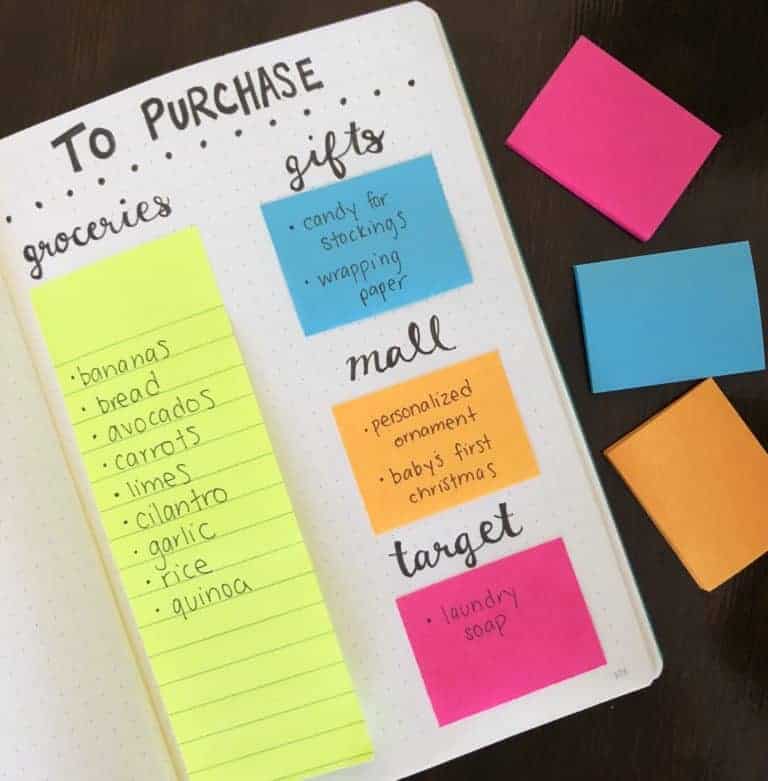 TO PURCHASE
groceries
• bananas
• bread
• avocados
• carrots
• limes
• cilantro
• garlic
• rice
• quinoa
gifts
• candy for
stockings
• wrapping
paper
mall
• personalized
ornament
• baby's first
christmas
target
• laundry
soap